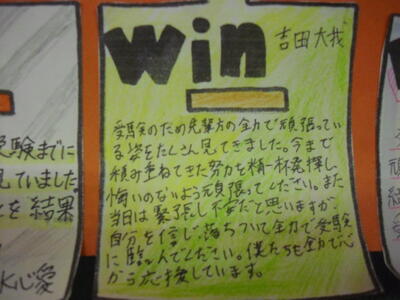 win 吉田大我
受験のため先輩方の全力で頑張ってい
る姿をたくさん見てきました。今まで
積み重ねてきた努力を精一杯発揮し、
悔いのないよう頑張ってください。また
当日は緊張し不安だと思いますが
自分を信じ落ちついて全力で受験
に臨んでください。僕たちも全力で心
から応援しています。
受験までに
見ていました
を結果
心愛